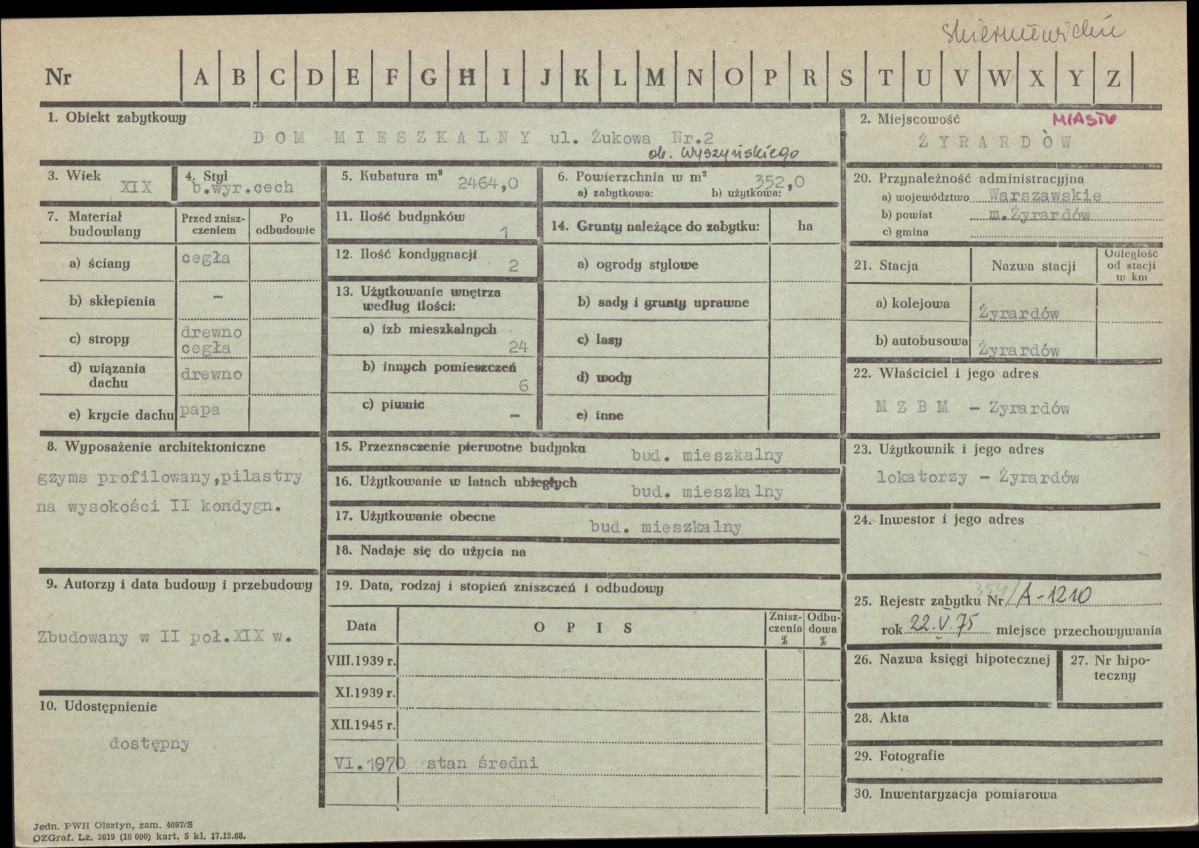 skierniewickie
Nr A B C D E F G H I J K L M N O P R S T U V W X Y Z
1. Obiekt zabytkowy
DOM MIESZKALNY ul. Żukowa Nr.2
ob. Wyszyńskiego
2. Miejscowość MIASTO
ŻYRARDÒW
3. Wiek
XIX
4. Styl
b.wyr.cech
5. Kubatura m³
2464,0
6. Powierzchnia w m²
352,0
a) zabytkowa: b) użytkowa:
7. Materiał budowlany
Przed zniszczeniem
Po odbudowie
a) ściany cegła
b) sklepienia –
c) stropy drewno
cegła
d) wiązania dachu drewno
e) krycie dachu papa
8. Wyposażenie architektoniczne
gzyms profilowany,pilastry
na wysokości II kondygn.
9. Autorzy i data budowy i przebudowy
Zbudowany w II poł.XIX w.
10. Udostępnienie
dostępny
11. Ilość budynków
1
12. Ilość kondygnacji
2
13. Użytkowanie wnętrza
według ilości:
a) izb mieszkalnych
24
b) innych pomieszczeń
6
c) piwnic
–
14. Grunty należące do zabytku: ha
a) ogrody stylowe
b) sady i grunty uprawne
c) lasy
d) wody
e) inne
15. Przeznaczenie pierwotne budynku bud. mieszkalny
16. Użytkowanie w latach ubiegłych bud. mieszkalny
17. Użytkowanie obecne bud. mieszkalny
18. Nadaje się do użycia na
19. Data, rodzaj i stopień zniszczeń i odbudowy
Data OPIS Zniszczenia % Odbudowa %
VIII.1939 r.
XI.1939 r.
XII.1945 r.
VI.1970 stan średni
20. Przynależność administracyjna
a) województwo Warszawskie
b) powiat m.Żyrardów
c) gmina
21. Stacja Nazwa stacji Odległość od stacji w km
a) kolejowa Żyrardów
b) autobusowa Żyrardów
22. Właściciel i jego adres
M Z B M – Żyrardów
23. Użytkownik i jego adres
lokatorzy – Żyrardów
24. Inwestor i jego adres
25. Rejestr zabytku Nr A-1210
rok 22.V.75 miejsce przechowywania
26. Nazwa księgi hipotecznej
27. Nr hipoteczny
28. Akta
29. Fotografie
30. Inwentaryzacja pomiarowa
Jedn. PWH Olsztyn, zam. 4097/S
OZGraf. Lz. 2619 (10 000) kart. 5 kl. 17.12.68.